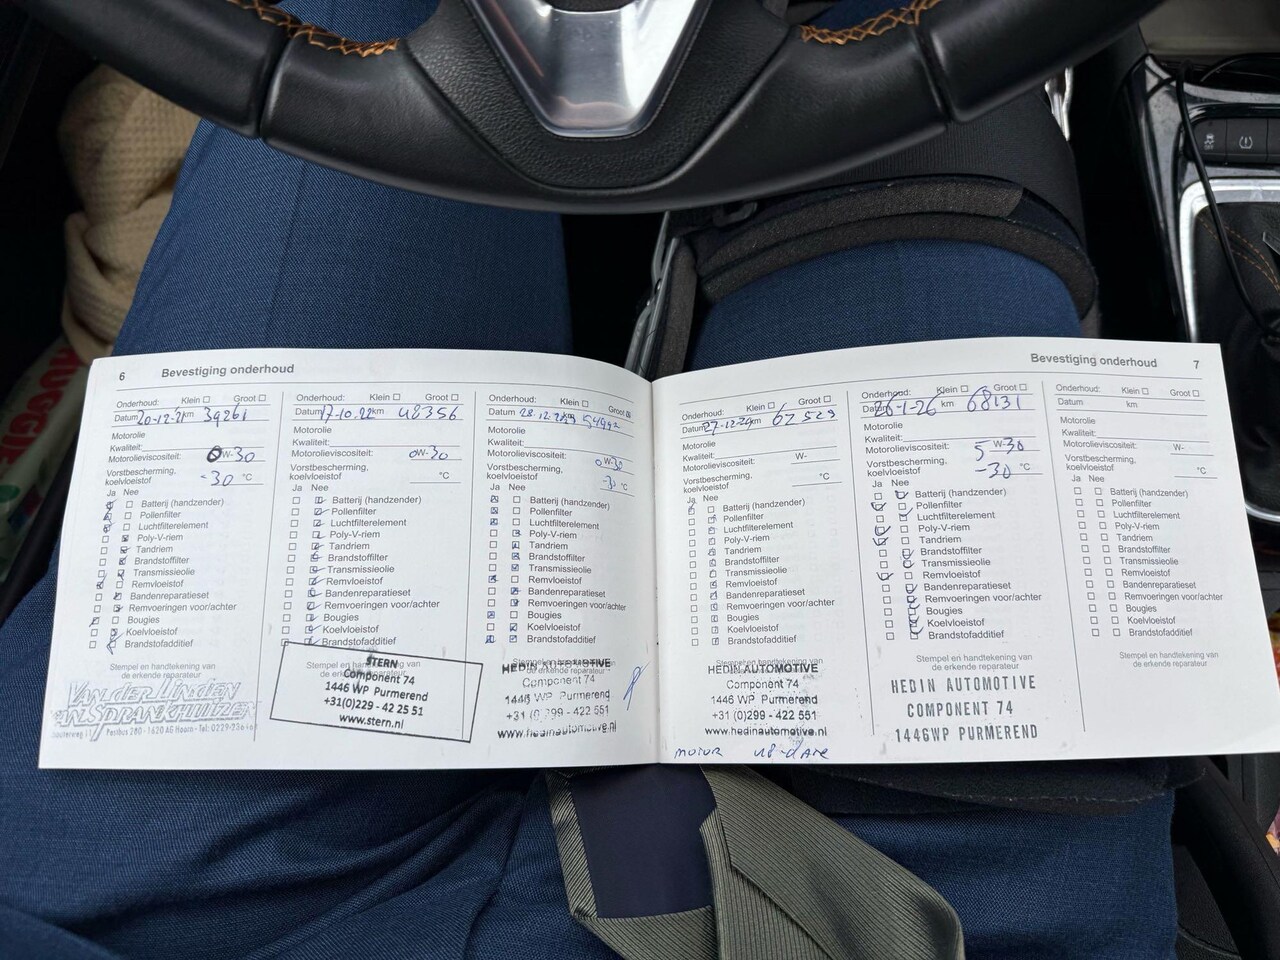 6 Bevestiging onderhoud
Onderhoud: Klein Groot
Datum 20-12-21 km 39261
Motorolie
Kwaliteit:
Motorolieviscositeit: 0W-30
Vorstbescherming,
koelvloeistof -30 °C
Ja Nee
Batterij (handzender)
Pollenfilter
Luchtfilterelement
Poly-V-riem
Tandriem
Brandstoffilter
Transmissieolie
Remvloeistof
Bandenreparatieset
Remvoeringen voor/achter
Bougies
Koelvloeistof
Brandstofadditief
Stempel en handtekening van
de erkende reparateur
VAN DER LINDEN
Postbus 280 - 1620 AG Hoorn - Tel: 0229-
Onderhoud: Klein Groot
Datum 17-10-22 km 48356
Motorolie
Kwaliteit:
Motorolieviscositeit: 0W-30
Vorstbescherming,
koelvloeistof °C
Ja Nee
Batterij (handzender)
Pollenfilter
Luchtfilterelement
Poly-V-riem
Tandriem
Brandstoffilter
Transmissieolie
Remvloeistof
Bandenreparatieset
Remvoeringen voor/achter
Bougies
Koelvloeistof
Brandstofadditief
STERN
Component 74
1446 WP Purmerend
+31(0)229 - 42 25 51
www.stern.nl
Onderhoud: Klein Groot
Datum 28.12. km
Motorolie
Kwaliteit:
Motorolieviscositeit: 0W-30
Vorstbescherming,
koelvloeistof -3 °C
Ja Nee
Batterij (handzender)
Pollenfilter
Luchtfilterelement
Poly-V-riem
Tandriem
Brandstoffilter
Transmissieolie
Remvloeistof
Bandenreparatieset
Remvoeringen voor/achter
Bougies
Koelvloeistof
Brandstofadditief
Stempel en handtekening van
de erkende reparateur
HEDIN AUTOMOTIVE
Component 74
1446 WP Purmerend
+31 (0)299 - 422 551
www.hedinautomotive.nl
Bevestiging onderhoud 7
Onderhoud: Klein Groot
Datum 27-12-24 km 62529
Motorolie
Kwaliteit:
Motorolieviscositeit: W-
Vorstbescherming,
koelvloeistof °C
Ja Nee
Batterij (handzender)
Pollenfilter
Luchtfilterelement
Poly-V-riem
Tandriem
Brandstoffilter
Transmissieolie
Remvloeistof
Bandenreparatieset
Remvoeringen voor/achter
Bougies
Koelvloeistof
Brandstofadditief
Stempel en handtekening van
de erkende reparateur
HEDIN AUTOMOTIVE
Component 74
1446 WP Purmerend
+31 (0)299 - 422 551
www.hedinautomotive.nl
motor up-date
Onderhoud: Klein Groot
Datum 26-1-26 km 68131
Motorolie
Kwaliteit:
Motorolieviscositeit: 5W-30
Vorstbescherming,
koelvloeistof -30 °C
Ja Nee
Batterij (handzender)
Pollenfilter
Luchtfilterelement
Poly-V-riem
Tandriem
Brandstoffilter
Transmissieolie
Remvloeistof
Bandenreparatieset
Remvoeringen voor/achter
Bougies
Koelvloeistof
Brandstofadditief
Stempel en handtekening van
de erkende reparateur
HEDIN AUTOMOTIVE
COMPONENT 74
1446WP PURMEREND
Onderhoud: Klein Groot
Datum km
Motorolie
Kwaliteit:
Motorolieviscositeit: W-
Vorstbescherming,
koelvloeistof °C
Ja Nee
Batterij (handzender)
Pollenfilter
Luchtfilterelement
Poly-V-riem
Tandriem
Brandstoffilter
Transmissieolie
Remvloeistof
Bandenreparatieset
Remvoeringen voor/achter
Bougies
Koelvloeistof
Brandstofadditief
Stempel en handtekening van
de erkende reparateur
OFF